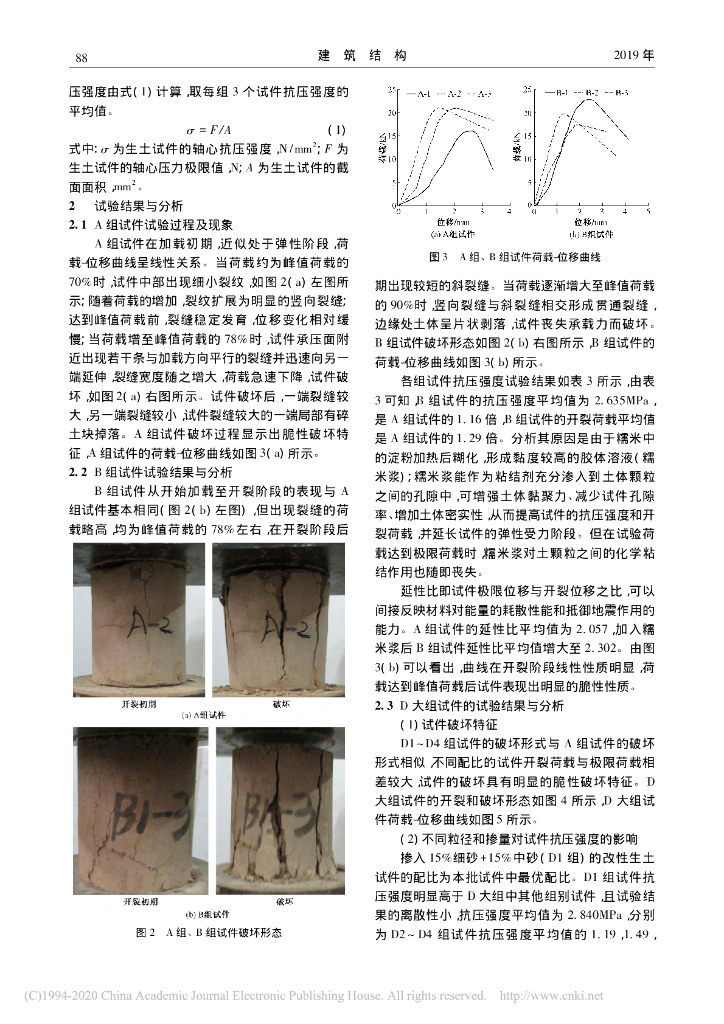 88
建 筑 结 构
2019 年
压强度由式( 1) 计算 ,取每组 3 个试件抗压强度的
平均值。
σ = F /A ( 1)
式中: σ 为生土试件的轴心抗压强度 ,N / mm²; F 为
生土试件的轴心压力极限值 ,N; A 为生土试件的截
面面积 ,mm² 。
2 试验结果与分析
2. 1 A 组试件试验过程及现象
A 组试件在加载初期 ,近似处于弹性阶段 ,荷
载-位移曲线呈线性关系。当荷载约为峰值荷载的
70%时 ,试件中部出现细小裂纹 ,如图 2( a) 左图所
示; 随着荷载的增加 ,裂纹扩展为明显的竖向裂缝;
达到峰值荷载前 ,裂缝稳定发育 ,位移变化相对缓
慢; 当荷载增至峰值荷载的 78%时 ,试件承压面附
近出现若干条与加载方向平行的裂缝并迅速向另一
端延伸 ,裂缝宽度随之增大 ,荷载急速下降 ,试件破
坏 ,如图 2( a) 右图所示。试件破坏后 ,一端裂缝较
大 ,另一端裂缝较小 ,试件裂缝较大的一端局部有碎
土块掉落。A 组试件破坏过程显示出脆性破坏特
征 ,A 组试件的荷载-位移曲线如图 3( a) 所示。
2. 2 B 组试件试验结果与分析
B 组试件从开始加载至开裂阶段的表现与 A
组试件基本相同( 图 2( b) 左图) ,但出现裂缝的荷
载略高 ,均为峰值荷载的 78%左右 ,在开裂阶段后
A-2
A-2
开裂初期
破坏
(a) A组试件
B1-3
B1-3
开裂初期
破坏
(b) B组试件
图 2 A 组、B 组试件破坏形态
A-1 A-2 A-3
25
20
15
10
5
0
荷载/kN
0 1 2 3 4 5
位移/mm
(a) A组试件
B-1 B-2 B-3
25
20
15
10
5
0
荷载/kN
0 1 2 3 4 5
位移/mm
(b) B组试件
图 3 A 组、B 组试件荷载-位移曲线
期出现较短的斜裂缝。当荷载逐渐增大至峰值荷载
的 90%时 ,竖向裂缝与斜裂缝相交形成贯通裂缝 ,
边缘处土体呈片状剥落 ,试件丧失承载力而破坏。
B 组试件破坏形态如图 2( b) 右图所示 ,B 组试件的
荷载-位移曲线如图 3( b) 所示。
各组试件抗压强度试验结果如表 3 所示 ,由表
3 可知 ,B 组试件的抗压强度平均值为 2. 635MPa ,
是 A 组试件的 1. 16 倍 ,B 组试件的开裂荷载平均值
是 A 组试件的 1. 29 倍。分析其原因是由于糯米中
的淀粉加热后糊化 ,形成黏度较高的胶体溶液( 糯
米浆) ; 糯米浆能作为粘结剂充分渗入到土体颗粒
之间的孔隙中 ,可增强土体黏聚力、减少试件孔隙
率、增加土体密实性 ,从而提高试件的抗压强度和开
裂荷载 ,并延长试件的弹性受力阶段。但在试验荷
载达到极限荷载时 ,糯米浆对土颗粒之间的化学粘
结作用也随即丧失。
延性比即试件极限位移与开裂位移之比 ,可以
间接反映材料对能量的耗散性能和抵御地震作用的
能力。A 组试件的延性比平均值为 2. 057 ,加入糯
米浆后 B 组试件延性比平均值增大至 2. 302。由图
3( b) 可以看出 ,曲线在开裂阶段线性性质明显 ,荷
载达到峰值荷载后试件表现出明显的脆性性质。
2. 3 D 大组试件的试验结果与分析
( 1) 试件破坏特征
D1 ~ D4 组试件的破坏形式与 A 组试件的破坏
形式相似 ,不同配比的试件开裂荷载与极限荷载相
差较大 ,试件的破坏具有明显的脆性破坏特征。D
大组试件的开裂和破坏形态如图 4 所示 ,D 大组试
件荷载-位移曲线如图 5 所示。
( 2) 不同粒径和掺量对试件抗压强度的影响
掺入 15%细砂+15%中砂( D1 组) 的改性生土
试件的配比为本批试件中最优配比。D1 组试件抗
压强度明显高于 D 大组中其他组别试件 ,且试验结
果的离散性小 ,抗压强度平均值为 2. 840MPa ,分别
为 D2 ~ D4 组试件抗压强度平均值的 1. 19 ,1. 49 ,
(C)1994-2020 China Academic Journal Electronic Publishing House. All rights reserved. http://www.cnki.net